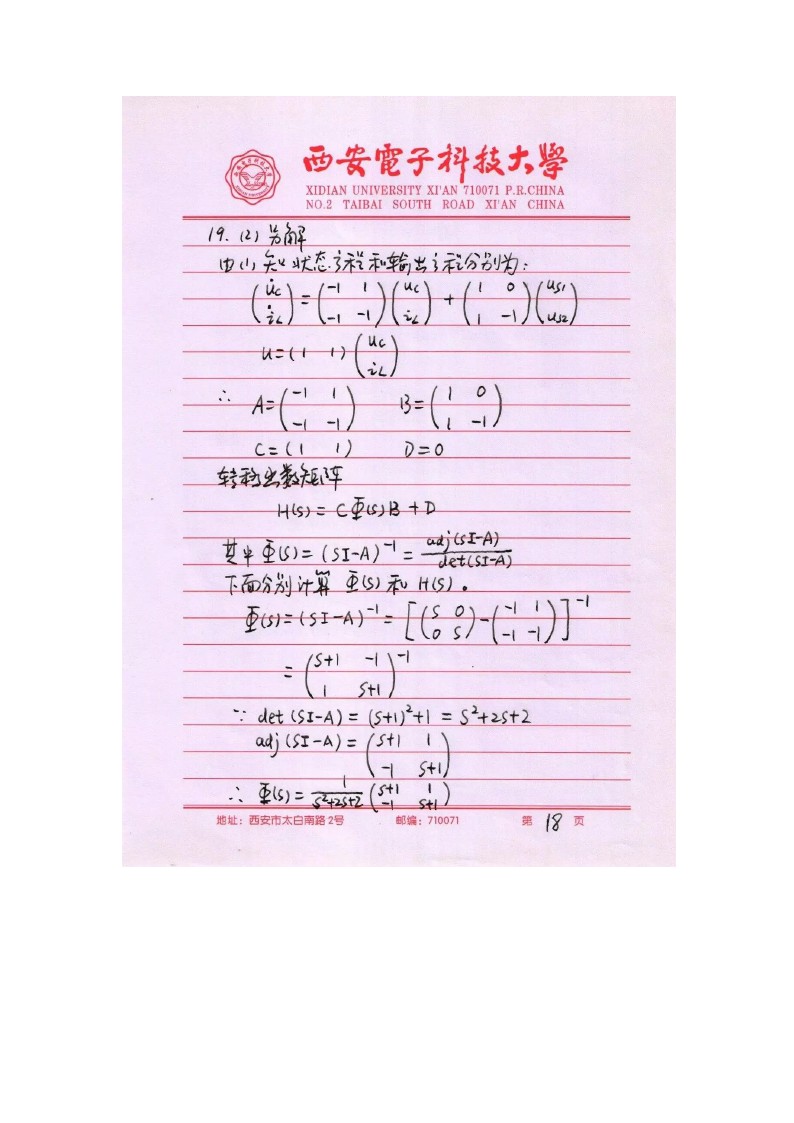 西安電子科技大學
XIDIAN UNIVERSITY XI'AN 710071 P.R.CHINA
NO.2 TAIBAI SOUTH ROAD XI'AN CHINA
19. (2) 另解
由(1)知状态方程和输出方程分别为：
(u̇c; i̇L) = (-1 1; -1 -1)(uc; iL) + (1 0; 1 -1)(us1; us2)
u=(1 1)(uc; iL)
∴ A=(-1 1; -1 -1) B=(1 0; 1 -1)
C=(1 1) D=0
转移函数矩阵
H(s)= CΦ(s)B+D
其中Φ(s)=(SI-A)⁻¹ = adj(SI-A)/det(SI-A)
下面分别计算 Φ(s)和 H(s)。
Φ(s)=(SI-A)⁻¹=[(S 0; 0 S)-(-1 1; -1 -1)]⁻¹
=(S+1 -1; 1 S+1)⁻¹
∵ det(SI-A)=(S+1)²+1=S²+2S+2
adj(SI-A)=(S+1 1; -1 S+1)
∴ Φ(s)= 1/(S²+2S+2) (S+1 1; -1 S+1)
地址：西安市太白南路2号 邮编：710071 第 18 页